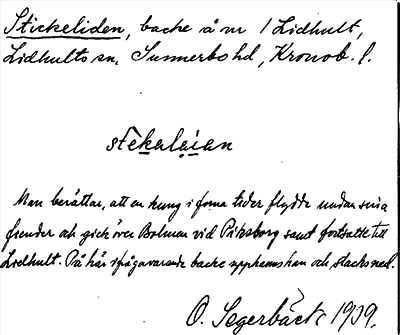 Stickeliden, backe å nr 1 Lidhult,
Lidhults sn. Sunnerbo hd, Kronob. l.
stekalaian
Man berättar, att en kung i forna tider flydde undan sina
fiender och gick över Bolmen vid Piksborg samt fortsatte till
Lidhult. På här ifrågavarande backe upphanns han och stacks ned.
O. Segerbäck 1939.